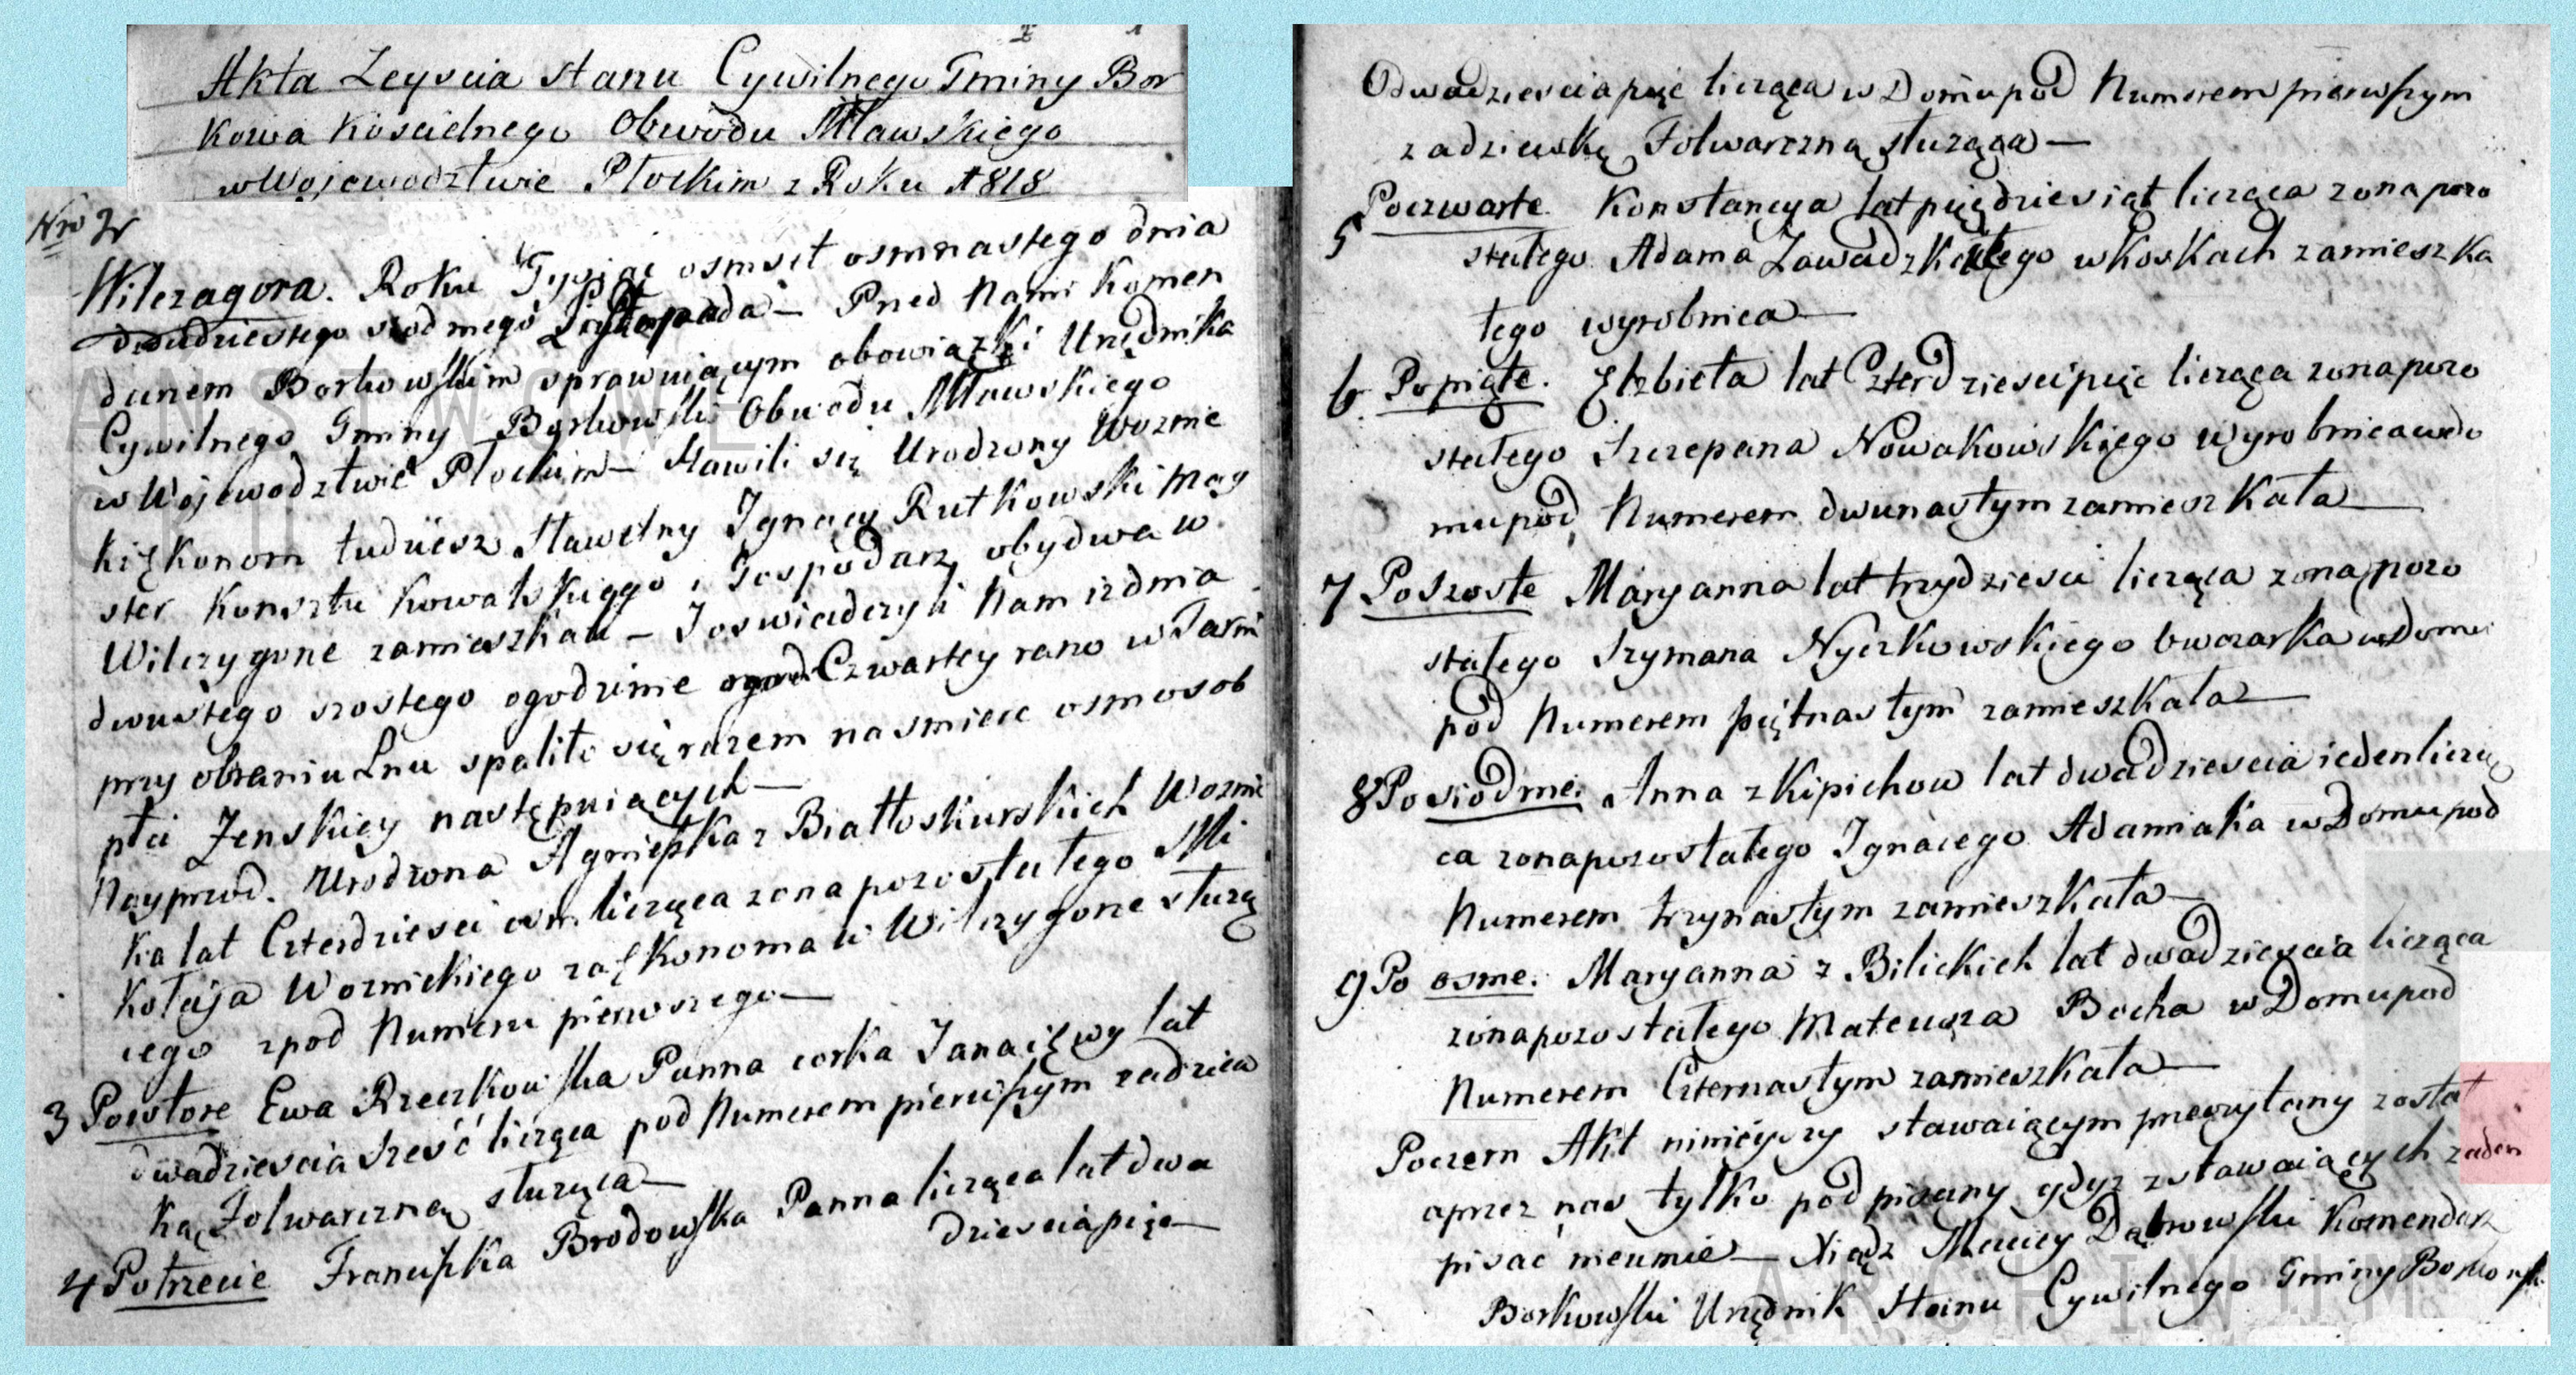 Akta Zeyscia stanu Cywilnego Gminy Bor
kowa Koscielnego Obwodu Mławskiego
w Wojewodztwie Płockim z Roku 1818
Nro 2
Wilczagora. Roku Tysiąc osmset osmnastego dnia
dwudziestego siodmego Listopada — Przed Nami Komen
darzem Borkowskim sprawuiącym obowiązki Urzędnika
Cywilnego Gminy Borkowski Obwodu Mławskiego
w Wojewodztwie Płockim — Stawili się Urodzony Woznic
ki Ękonom tudziesz Sławetny Ignacy Rutkowski May
ster Konsztu Kowalskiego i Gospodarz obydwa w
Wilczygorze zamieszkali — I oswiadczyli Nam iz dnia
dwustego szostego ogodzinie Czwartey rano w Jasni
przy obraniu Lnu spaliło się razem na smierc osm osob
płci Zenskiey następuiących —
Nayprzod. Urodzona Agnieszka z Białłoskurskich Woznic
ka lat Czterdziesci osm licząca zona pozostałego Mi
kołaja Woznickiego za Ękonoma w Wilczygorze służą
cego zpod Numeru pierwszego —
3 Powtore Ewa Rzeczkowska Panna corka Jana i Ewy lat
dwadziescia szesć licząca pod Numerem pierwszym zadziew
ką Folwarczną służąca —
4 Potrzecie Franciszka Brodowska Panna licząca lat dwa
dziescia pięc —
Odwadziescia pięc licząca w Domu pod Numerem pierwszym
zadziewkę Folwarczną służąca —
5 Poczwarte Konstancya lat pięcdziesiąt licząca zona pozo
stałego Adama Zawadzkiego w Koskach zamieszka
łego wyrobnica —
6 Popiąte. Elzbieta lat Czterdziesci pięc licząca zona pozo
stałego Szczepana Nowakowskiego wyrobnica w do
mu pod Numerem dwunastym zamieszkała —
7 Poszoste Maryanna lat trzydziesci licząca zona pozo
stałego Szymana Nyczkowskiego owczarka w Domu
pod Numerem piętnastym zamieszkała —
8 Po siodme. Anna z Kipichow lat dwadziescia ieden licząc
ca zona pozostałego Ignacego Adamiaka w Domu pod
Numerem trzynastym zamieszkała —
9 Po osme. Maryanna z Bilickich lat dwadziescia licząca
zona pozostałego Mateusza Bocha w Domu pod
Numerem Czternastym zamieszkała —
Poczem Akt ninieyszy stawaiącym przeczytany został
a przez nas tylko podpisany gdyz z stawaiących zaden
pisać nieumie — Xiądz Maciey Dąbrowski Komendarz
Borkowski Urzędnik Stanu Cywilnego Gminy Borkowsk